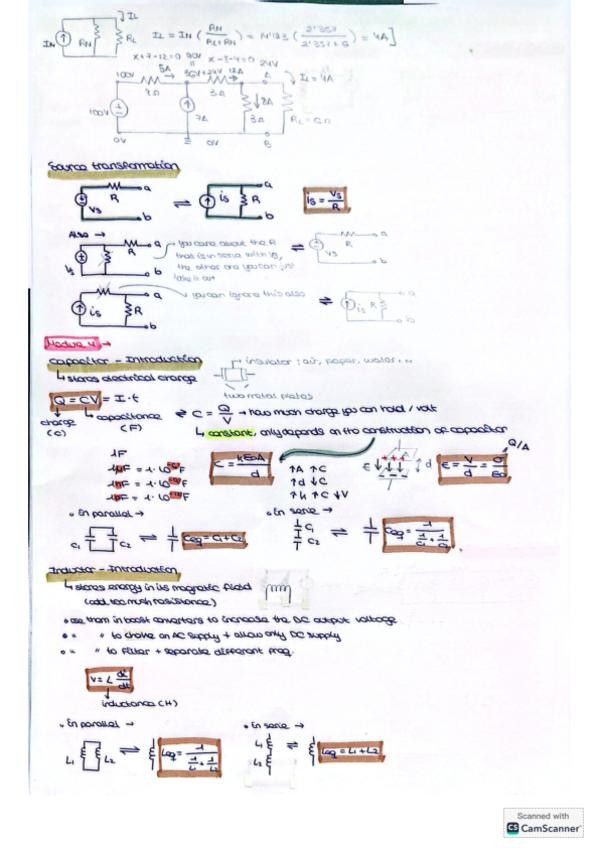 IL
IN RN RL IL = IN ( RN / RL+RN ) = N'123 ( 2'357 / 2'357+6 ) = 4A]
x+7-12=0 90V x-8-4=0 24V
100V 5A 12A A IL = 4A
2Ω 3Ω
100V 7A 3Ω 8A RL = 6Ω
0V 0V B
Source transformation
Vs R a b ⇌ is R a b is = Vs / R
Also →
Vs R a b you care about the R that is in serie with Vs, the other one you can just take it out ⇌ Vs R a b
is R a b you can ignore this also ⇌ is R a b
Module 4 →
Capacitor - Introduction
insulator: air, paper, water...
↳ stores electrical charge
two metal plates
Q = CV = I·t
charge (C) capacitance (F)
⇌ C = Q / V → how much charge you can hold / volt
↳ constant, only depends on the construction of capacitor
1F
1µF = 1·10⁻⁶F
1nF = 1·10⁻⁹F
1pF = 1·10⁻¹²F
C = kε₀A / d
↑A ↑C
↑d ↓C
↑k ↑C ↓V
A E d
E = V / d = σ / ε₀ Q/A
• En parallel →
C1 C2 ⇌ Ceq = C1+C2
• En serie →
C1 C2 ⇌ Ceq = 1 / 1/C1 + 1/C2
Inductor - Introduction
↳ stores energy in its magnetic field
(add too much resistance)
• use them in boost converters to increase the DC output voltage
• = " to choke an AC supply + allow only DC supply
• = " to filter + separate different freq.
V = L di / dt
inductance (H)
• En parallel →
L1 L2 ⇌ Leq = 1 / 1/L1 + 1/L2
• En serie →
L1 L2 ⇌ Leq = L1+L2
Scanned with
CS CamScanner